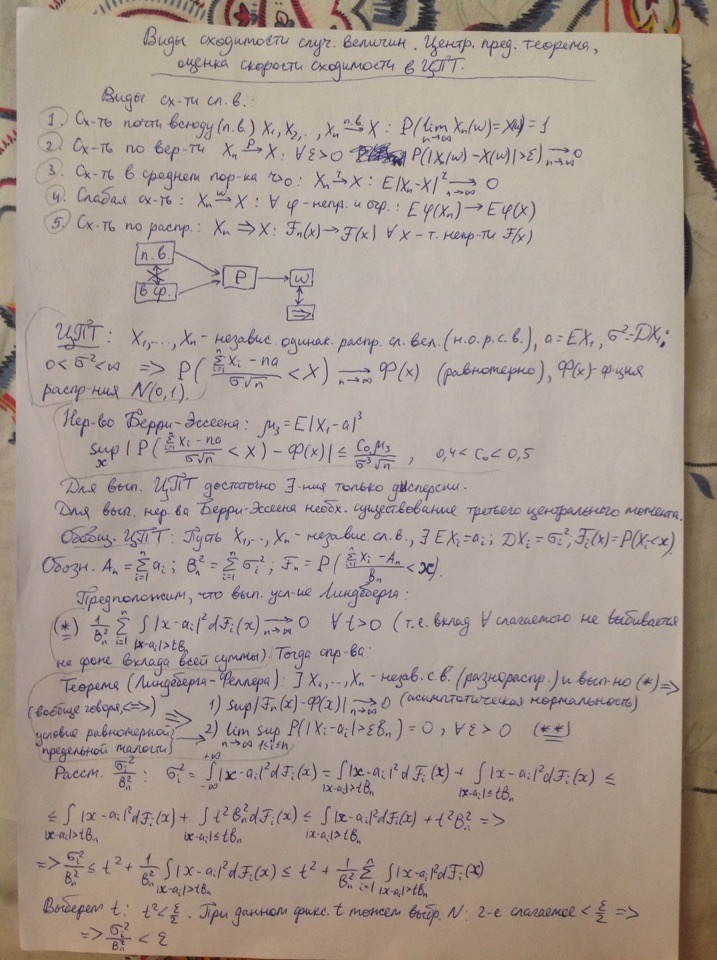 Виды сходимости случ. величин. Центр. пред. теорема,
оценка скорости сходимости в ЦПТ.
Виды сх-ти сл. в.:
1. Сх-ть почти всюду (п.в.) X₁, X₂, .., Xₙ →ⁿ·ᵛ· X : P(lim_{n→∞} Xₙ(w)=X(w))=1
2. Сх-ть по вер-ти Xₙ →ᴾ X : ∀ε>0 P(|Xₙ(w)-X(w)|>ε) →_{n→∞} 0
3. Сх-ть в среднем пор-ка r>0: Xₙ →ʳ X : E|Xₙ-X|² →_{n→∞} 0
4. Слабая сх-ть : Xₙ →ʷ X : ∀ φ-непр. и огр.: Eφ(Xₙ)→Eφ(X)
5. Сх-ть по распр.: Xₙ ⇒ X: Fₙ(x)→F(x) ∀ x - т. непр-ти F(x)
п.в.
в ср.
P
w
⇒
ЦПТ: X₁,..., Xₙ - независ. одинак. распр. сл. вел. (н.о.р.с.в.), a=EX₁, σ²=DX₁;
0<σ²<∞ => P( (∑_{i=1}^{n} Xᵢ - na)/(σ√n) < X ) →_{n→∞} Φ(x) (равномерно), Φ(x)-ф-ция
распр-ния N(0,1).
Нер-во Берри-Эссеена: μ₃=E|X₁-a|³
sup_x |P( (∑_{i=1}^{n} Xᵢ - na)/(σ√n) < X ) - Φ(x)| ≤ C₀μ₃/(σ³√n) , 0,4 < C₀ < 0,5
Для вып. ЦПТ достаточно ∃-ния только дисперсии.
Для вып. нер-ва Берри-Эссеена необх. существование третьего центрального момента.
Обобщ. ЦПТ: Пусть X₁,.., Xₙ - независ. сл. в., ∃ EXᵢ=aᵢ; DXᵢ=σᵢ²; Fᵢ(x)=P(Xᵢ<x)
Обозн. Aₙ=∑_{i=1}^{n} aᵢ; Bₙ²=∑_{i=1}^{n} σᵢ²; Fₙ=P( (∑_{i=1}^{n} Xᵢ - Aₙ)/Bₙ < x ).
Предположим, что вып. усл-ие Линдеберга:
(*) 1/Bₙ² ∑_{i=1}^{n} ∫_{|x-aᵢ|>tBₙ} |x-aᵢ|²dFᵢ(x) →_{n→∞} 0 ∀t>0 (т.е. вклад ∀ слагаемого не выбивается
на фоне вклада всей суммы). Тогда спр-ва:
Теорема (Линдеберга-Феллера): ] X₁,.., Xₙ - незав. с.в. (разнораспр.) и вып-но (*) =>
(вообще говоря, <=>) => 1) sup|Fₙ(x)-Φ(x)| →_{n→∞} 0 (асимптотическая нормальность)
условие равномерной предельной малости} → 2) lim_{n→∞} sup_{1≤i≤n} P(|Xᵢ-aᵢ|>εBₙ)=0, ∀ε>0 (**)
Рассм. σᵢ²/Bₙ² : σᵢ²=∫_{-∞}^{+∞} |x-aᵢ|²dFᵢ(x)=∫_{|x-aᵢ|>tBₙ} |x-aᵢ|²dFᵢ(x) + ∫_{|x-aᵢ|≤tBₙ} |x-aᵢ|²dFᵢ(x) ≤
≤ ∫_{|x-aᵢ|>tBₙ} |x-aᵢ|²dFᵢ(x) + ∫_{|x-aᵢ|≤tBₙ} t²Bₙ²dFᵢ(x) ≤ ∫_{|x-aᵢ|>tBₙ} |x-aᵢ|²dFᵢ(x) + t²Bₙ² =>
=> σᵢ²/Bₙ² ≤ t² + 1/Bₙ² ∫_{|x-aᵢ|>tBₙ} |x-aᵢ|²dFᵢ(x) ≤ t² + 1/Bₙ² ∑_{i=1}^{n} ∫_{|x-aᵢ|>tBₙ} |x-aᵢ|²dFᵢ(x)
Выберем t: t² < ε/2. При данном фикс. t можем выбр. N: 2-е слагаемое < ε/2 =>
=> σᵢ²/Bₙ² < ε